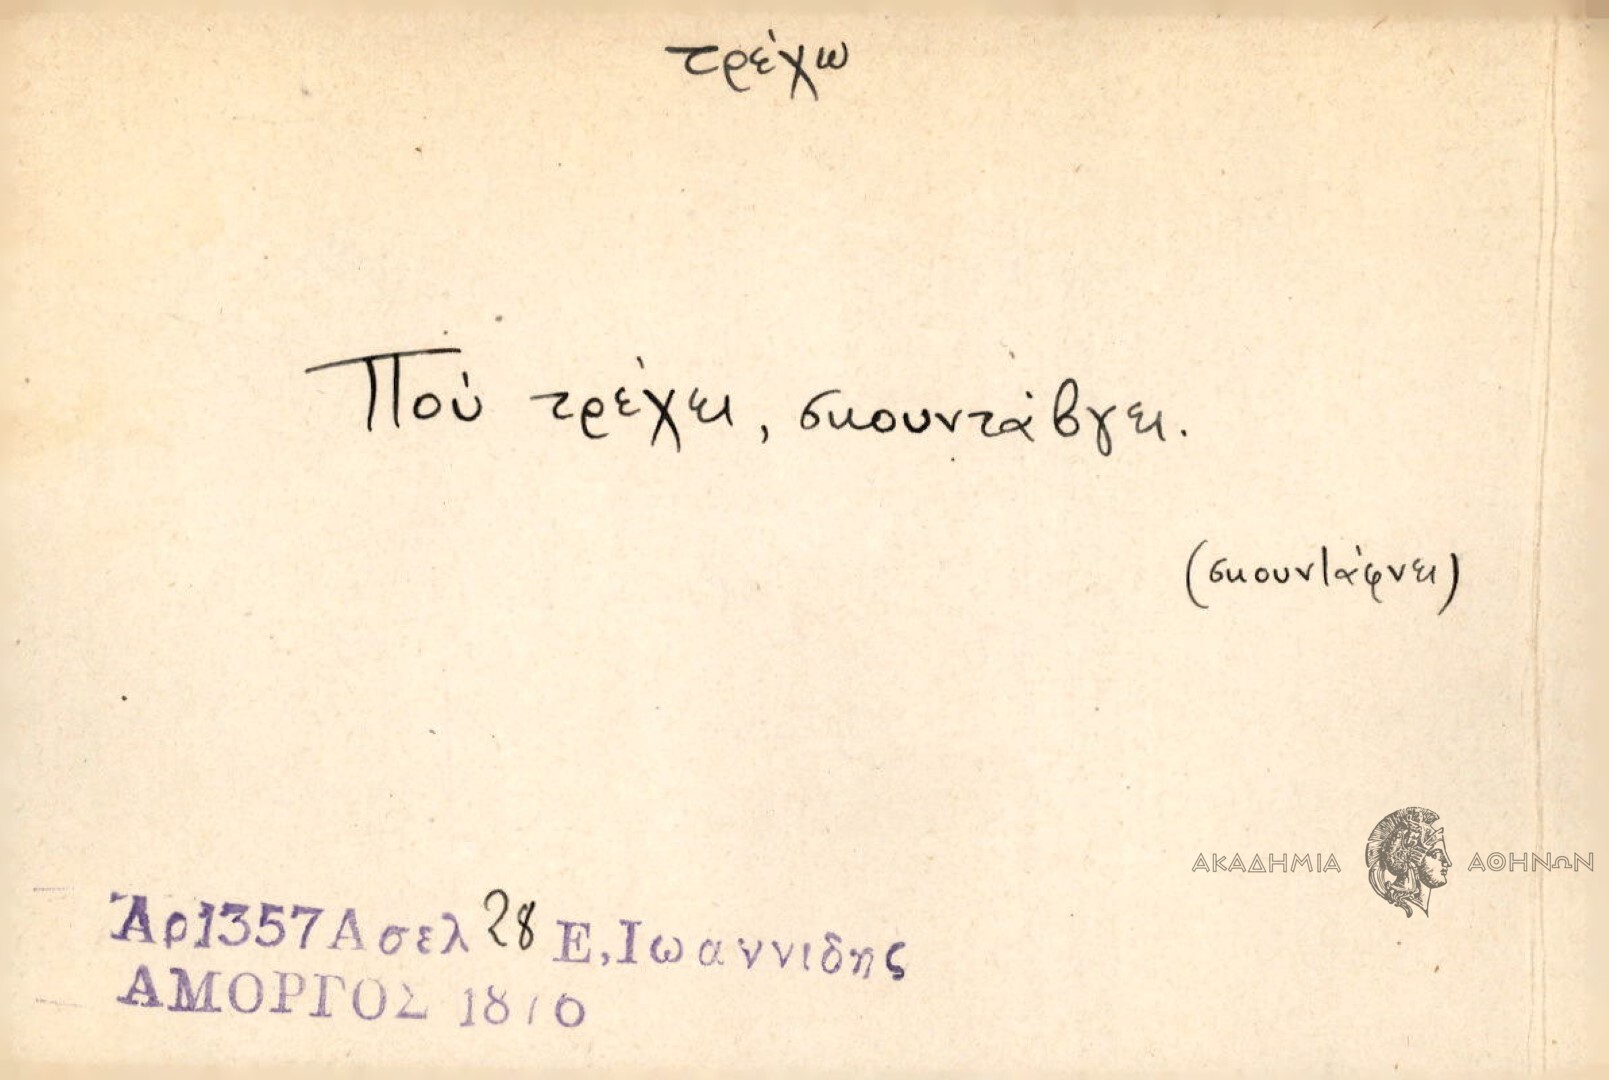 τρέχω
Πού τρέχει, σκουντάβγει.
(σκουντάφνει)
ΑΚΑΔΗΜΙΑ ΑΘΗΝΩΝ
Ἀρ1357Α σελ 28 Ε, Ιωαννιδης
ΑΜΟΡΓΟΣ